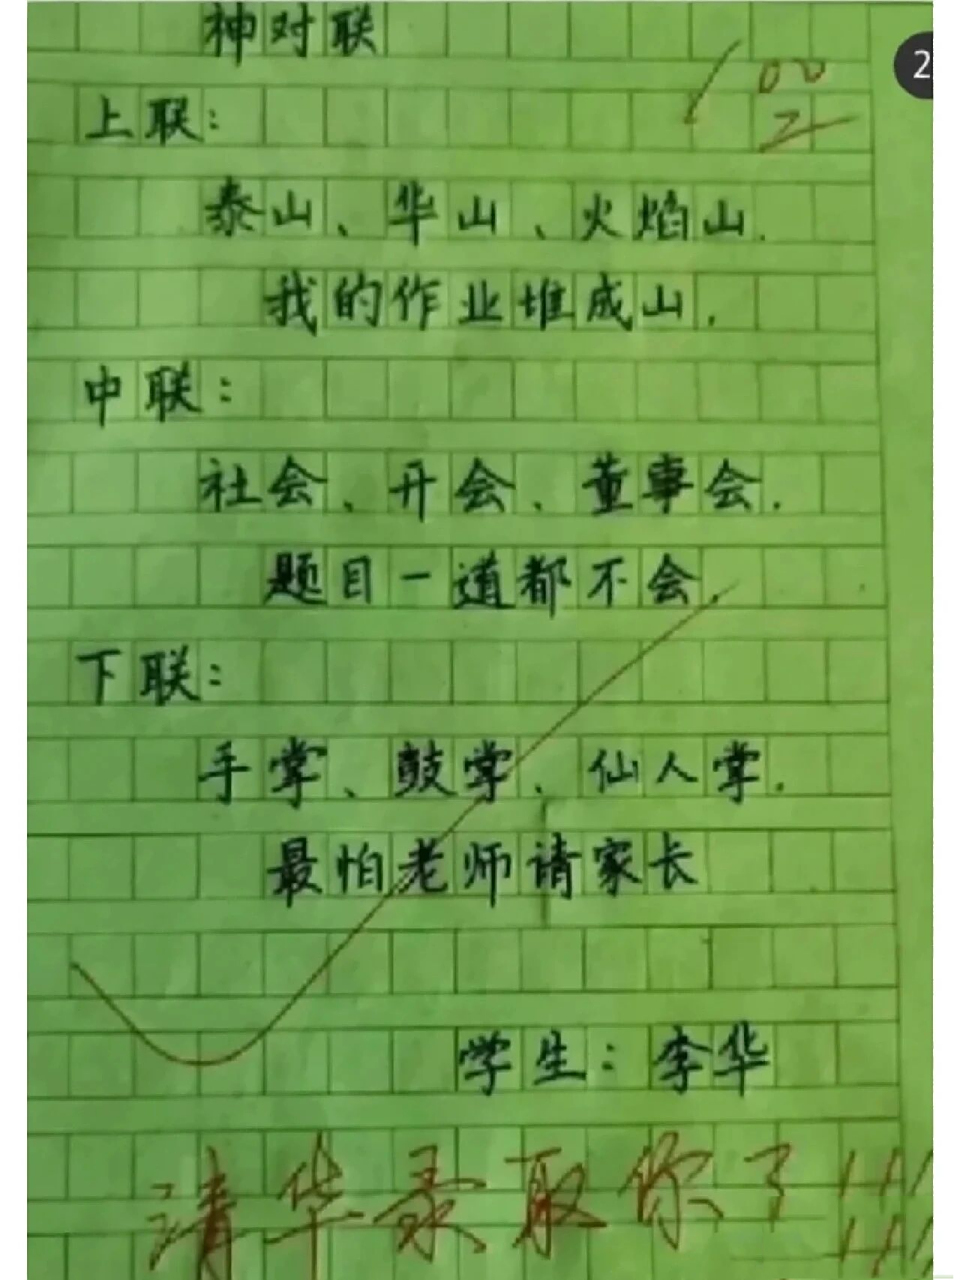 神对联
100
2
上联：
泰山、华山、火焰山.
我的作业堆成山.
中联：
社会、开会、董事会.
题目一道都不会.
下联：
手掌、鼓掌、仙人掌.
最怕老师请家长
学生：李华
清华录取你了!!!